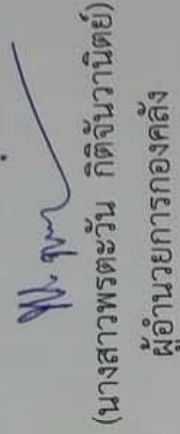 (นางสาวพรตะวัน กิตติจันวานิตย์)
ผู้อำนวยการกองคลัง